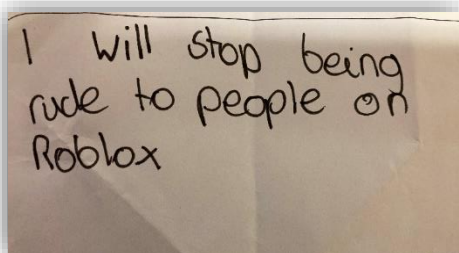 I will stop being
rude to people on
Roblox